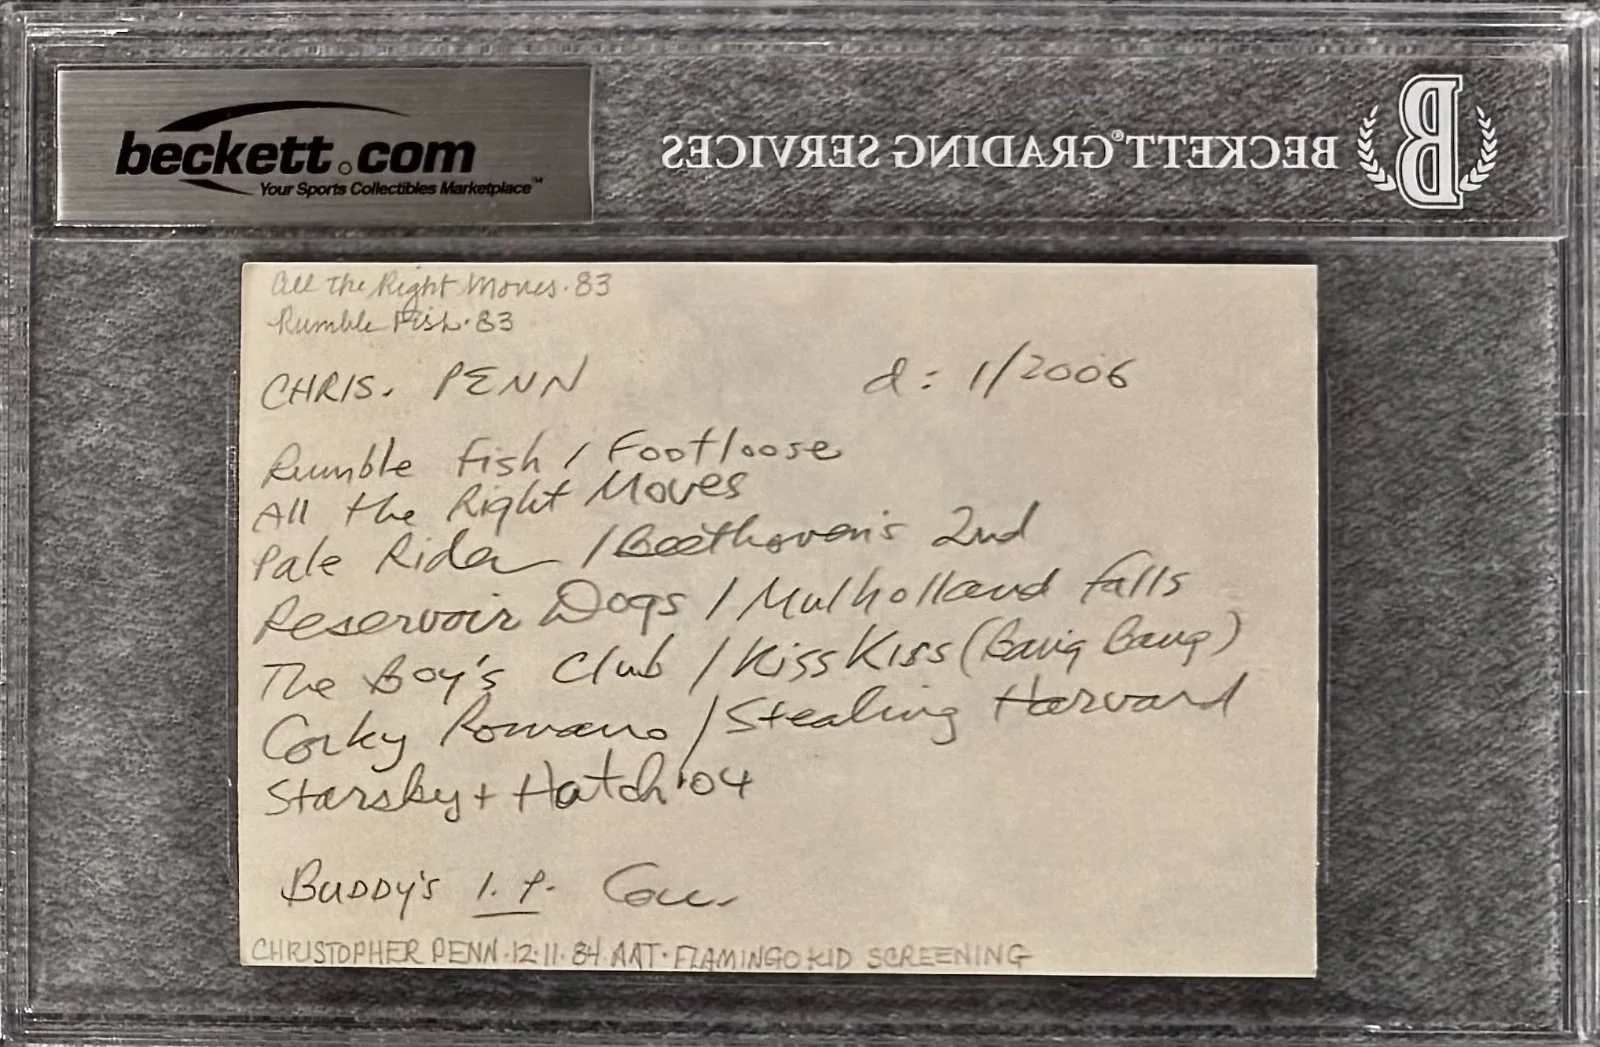 beckett.com
Your Sports Collectibles Marketplace™
BECKETT® GRADING SERVICES
B
All The Right Moves · 83
Rumble Fish · 83
CHRIS. PENN d: 1/2006
Rumble Fish / Footloose
All the Right Moves
Pale Rider / Beethoven's 2nd
Reservoir Dogs / Mulholland Falls
The Boy's Club / Kiss Kiss (Bang Bang)
Corky Romano / Stealing Harvard
Starsky + Hutch '04
BUDDY'S I.P.
CHRISTOPHER PENN · 12·11·84 AAT · FLAMINGO KID SCREENING